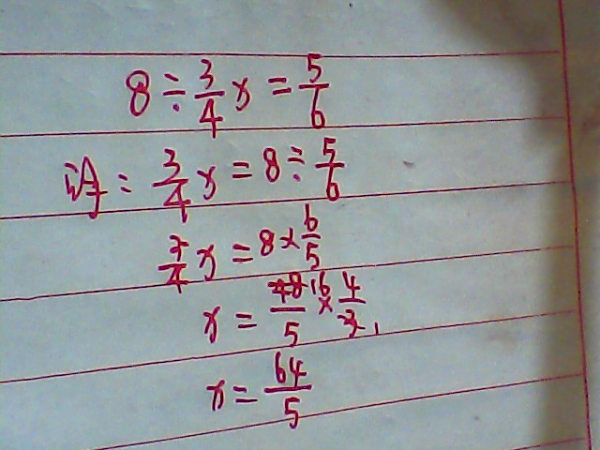 8÷3/4x=5/6
解:3/4x=8÷5/6
3/4x=8×6/5
x=48 16/5×4/3 1
x=64/5